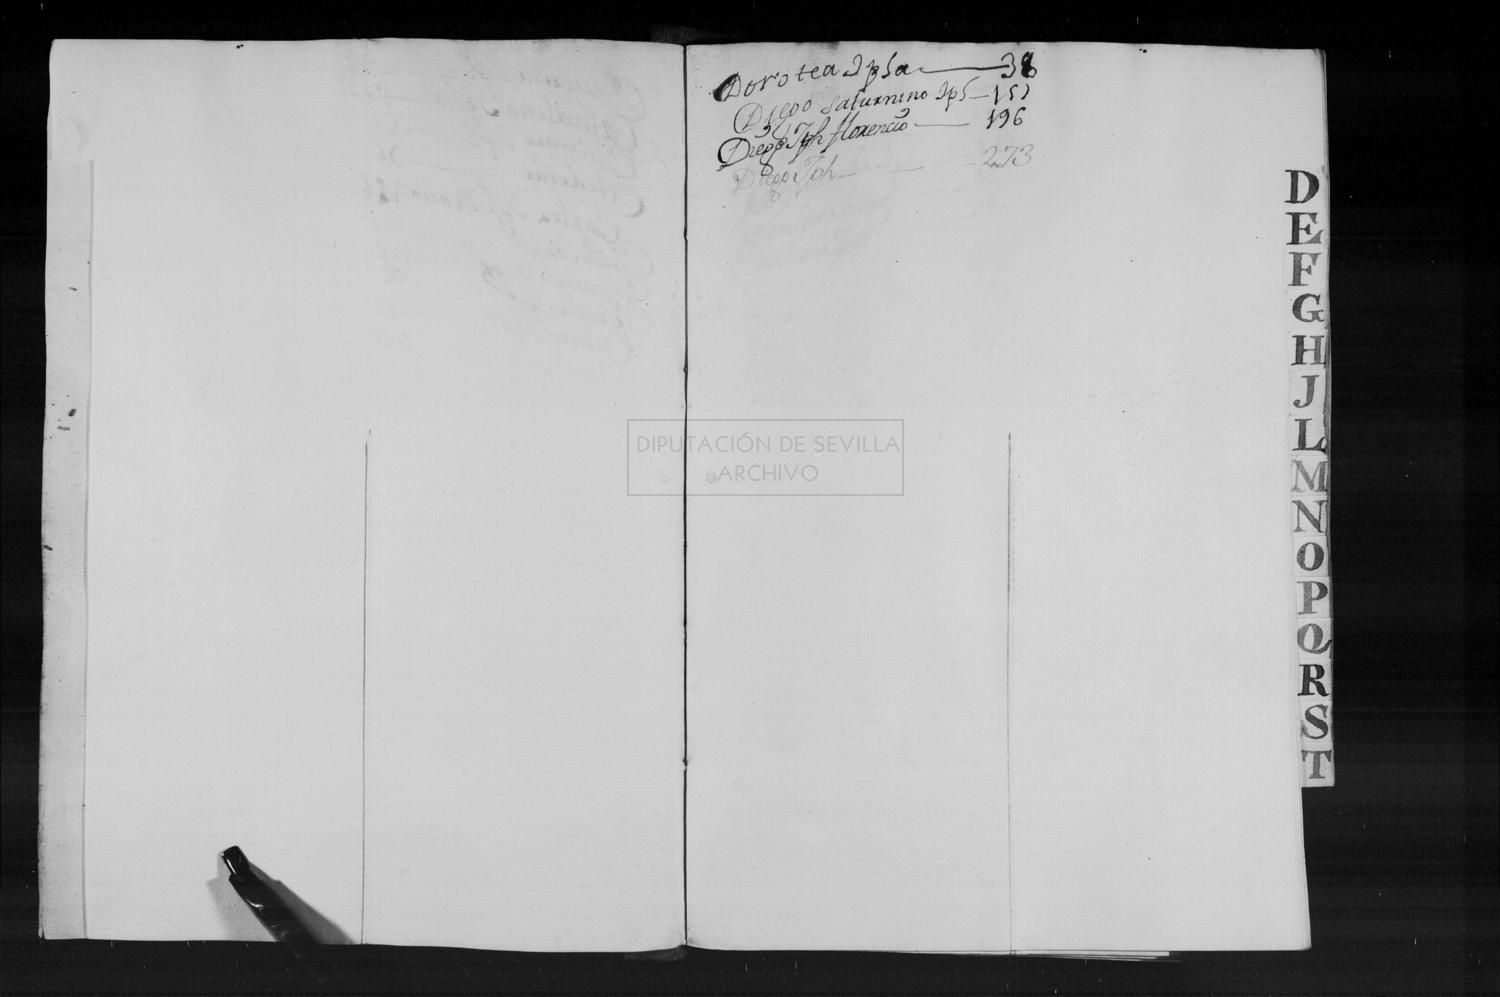 Dorotea Ipsa — 38
Diego Saturnino Ips — 151
Diego Jph florencio — 196
Diego Jph — 273
D
E
F
G
H
J
L
M
N
O
P
Q
R
S
T
DIPUTACIÓN DE SEVILLA
ARCHIVO